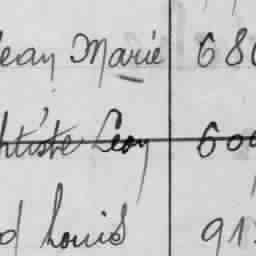 Jean Marie 680
ptiste Leon 600
d Louis 91